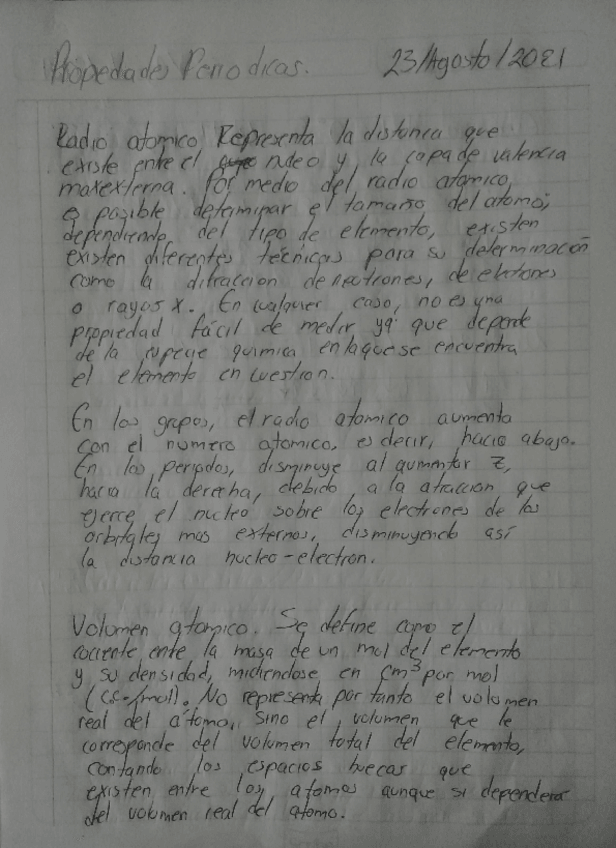 Propedades Periodicas. 23/Agosto/2021
Radio atomico Representa la distanca que
existe entre el nucleo y la capa de valencia
mas externa. Por medio del radio atomico,
es posible determinar el tamaño del atomo;
dependiendo del tipo de elemento, existen
existen diferentes técnicas para su determinación
como la difraccion de neutrones, de electrones
o rayos x. En cualquier caso, no es una
propiedad fácil de medir ya que depende
de la especie quimica en la que se encuentra
el elemento en cuestion.
En los grupos, el radio atomico aumenta
con el numero atomico, es decir, hacia abajo.
En los periodos, disminuye al aumentar Z,
hacia la derecha, debido a la atraccion que
ejerce el nucleo sobre los electrones de los
orbitales mas externos, disminuyendo así
la distancia nucleo-electron.
Volumen atomico. Se define como el
cociente ente la masa de un mol del elemento
y su densidad, midiendose en cm³ por mol
No representa por tanto el volumen
real del átomo, sino el volumen que le
corresponde del volumen total del elemento,
contando los espacios huecos que
existen entre los atomos aunque si dependera
del volumen real del atomo.